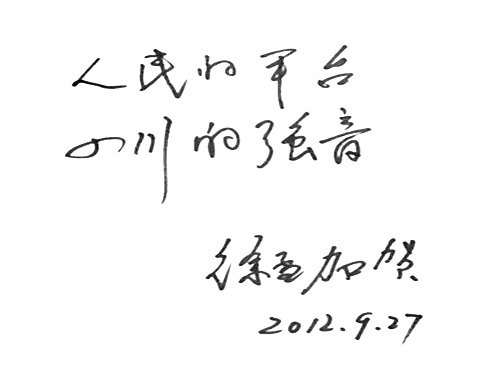 人民的平台
四川的强音
徐孟加贺
2012.9.27